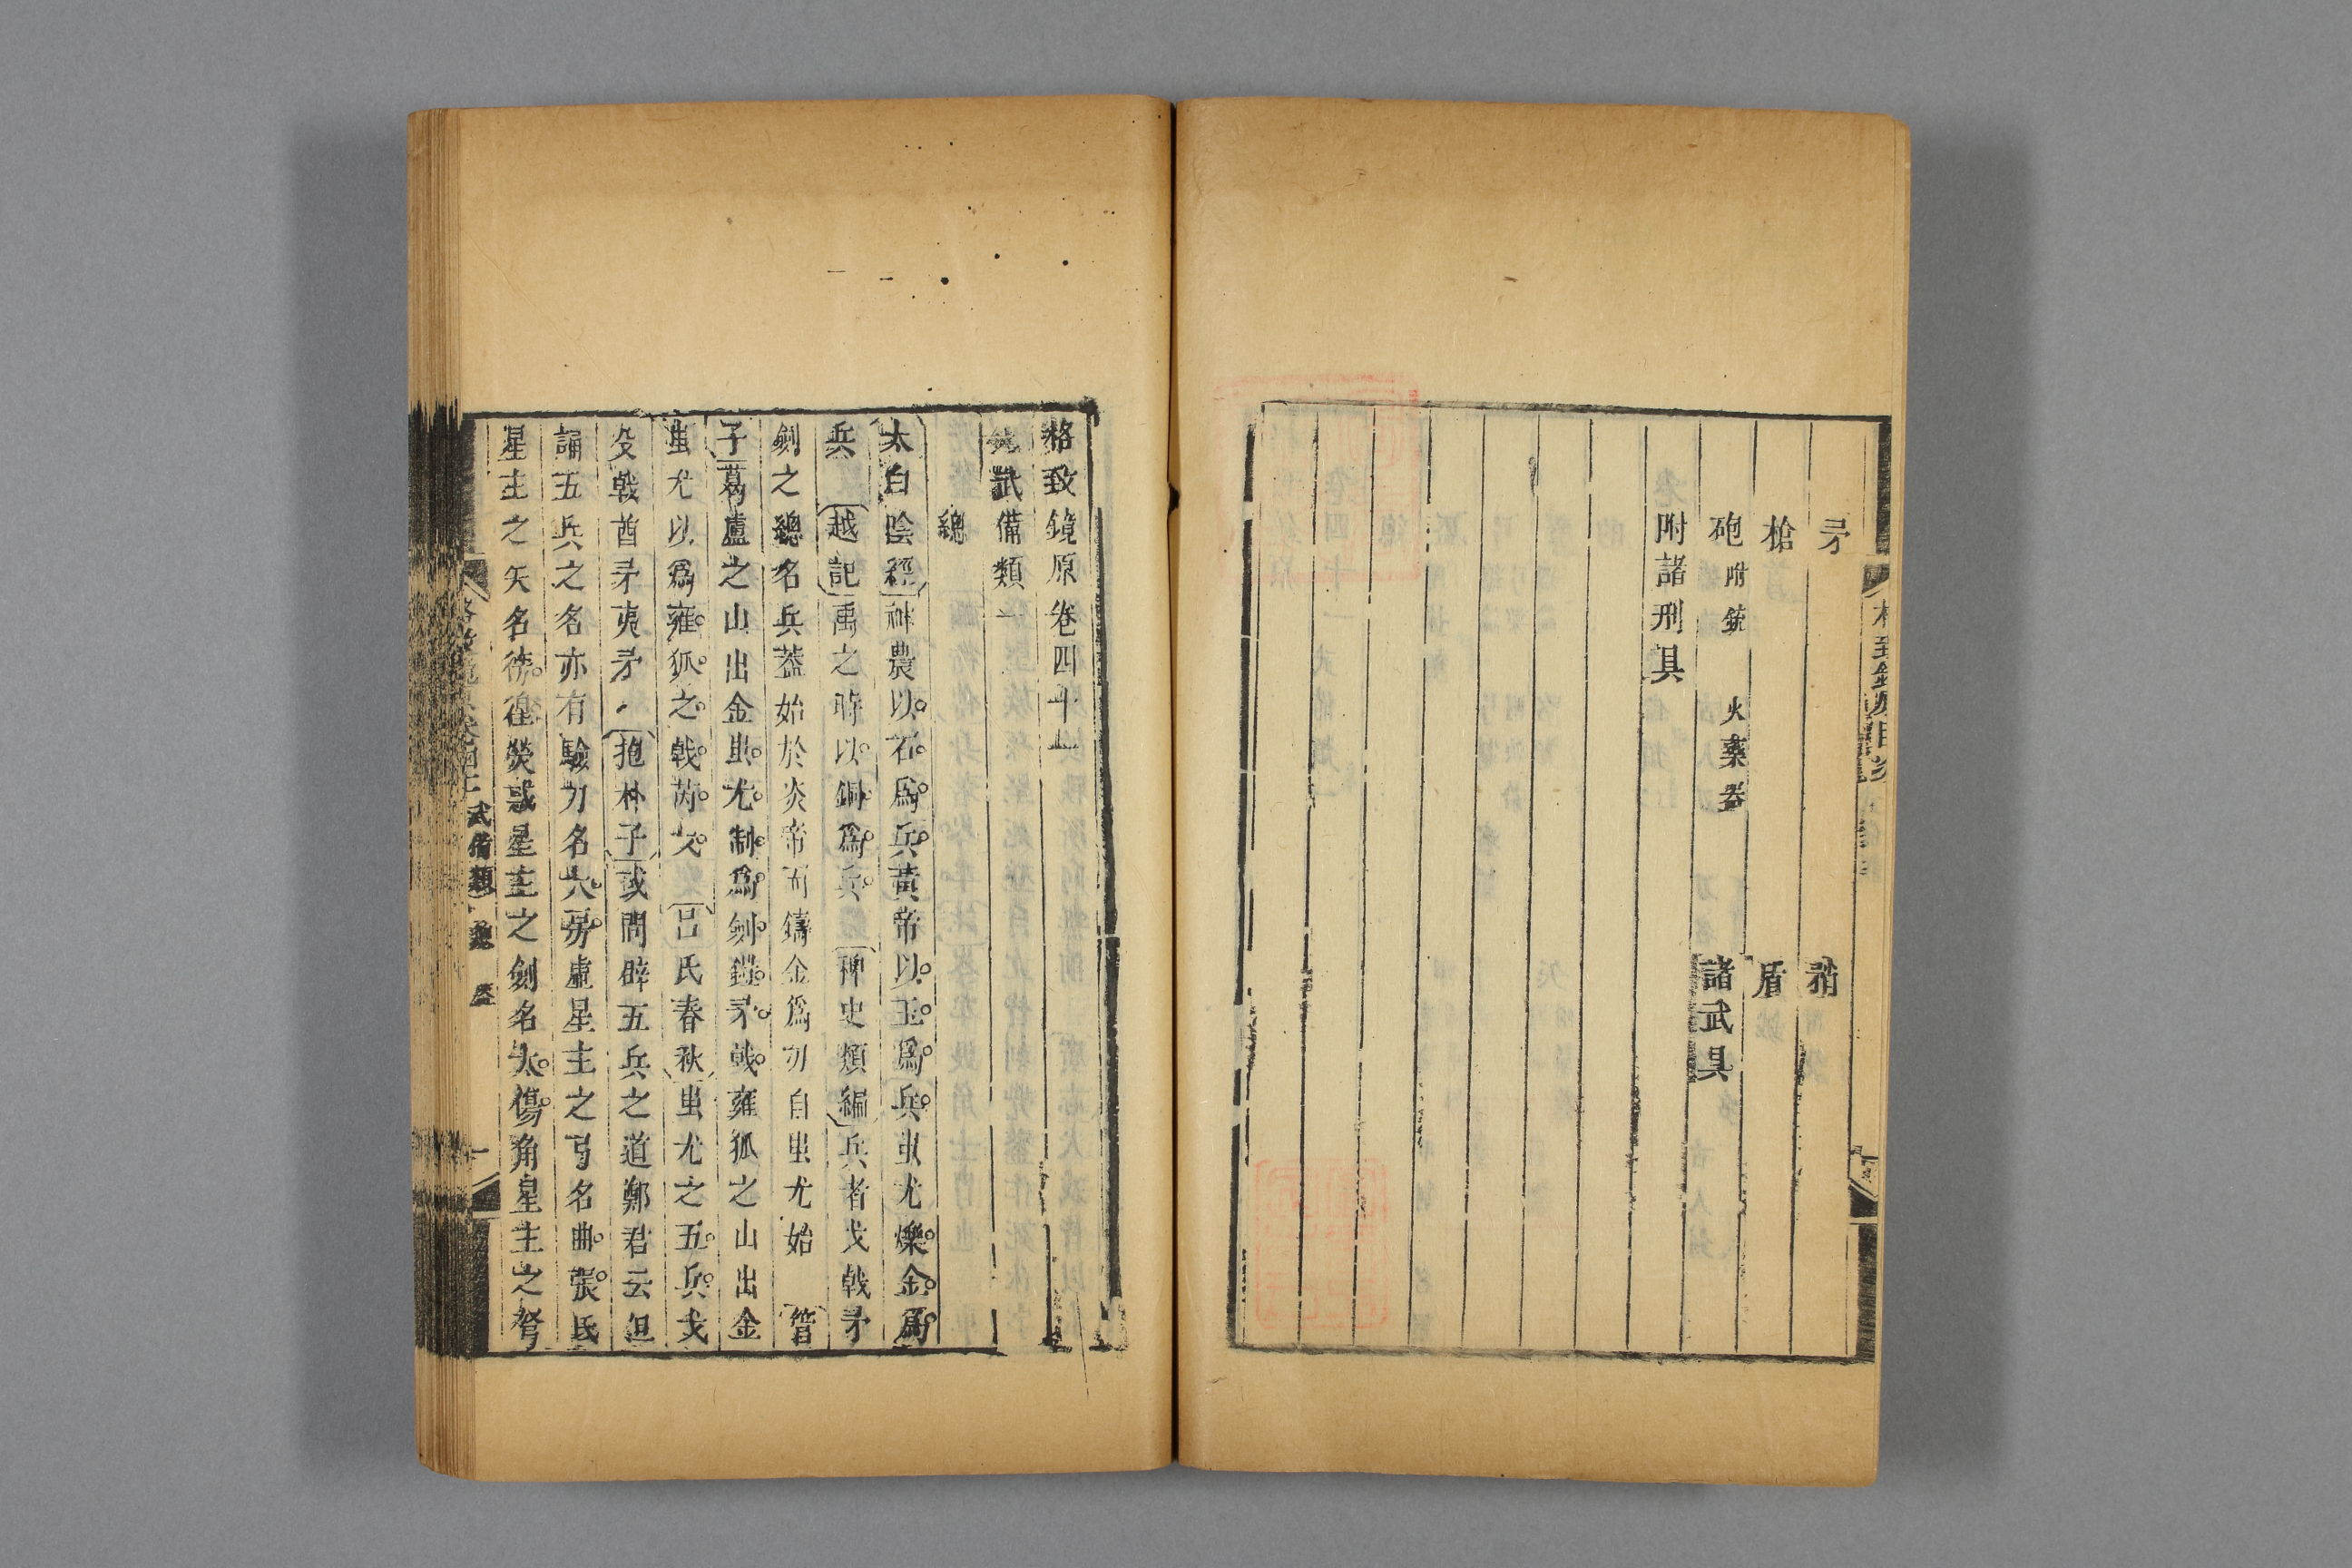 矛 矟
槍 盾
砲 附銃 火藥器 諸武具
附諸刑具
格致鏡原卷四十一
武備類一
總
太白陰經神農以石爲兵黃帝以玉爲兵蚩尤爍金爲
兵 越記禹之時以銅爲兵 稗史類編兵者戈戟矛
劍之總名兵葢始於炎帝而鑄金爲刃自蚩尤始 管
子葛盧之山出金蚩尤制爲劍鎧矛戟雍狐之山出金
蚩尤以爲雍狐之戟芮戈 呂氏春秋蚩尤之五兵戈
殳戟酋矛夷矛 抱朴子或問辟五兵之道鄭君云但
誦五兵之名亦有驗刀名大房虛星主之弓名曲張氐
星主之矢名徬徨熒惑星主之劍名大傷角星主之弩
武備類 總